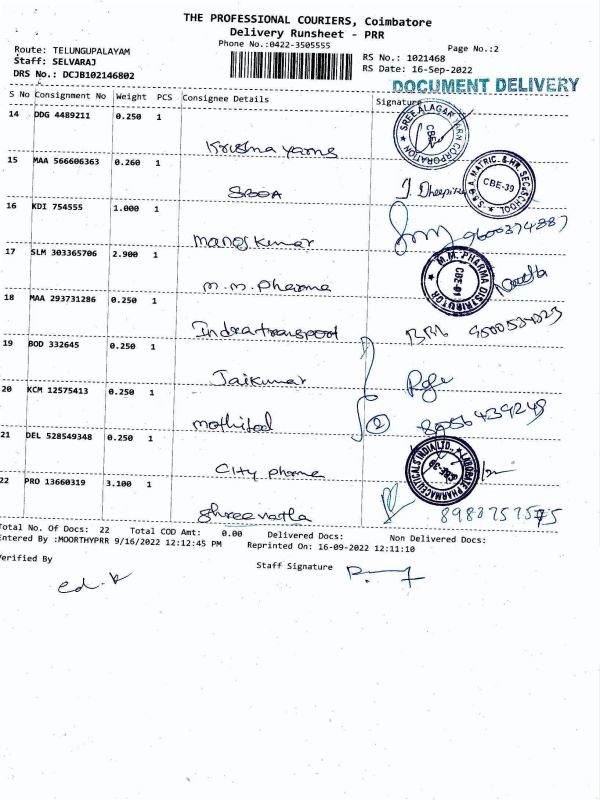 THE PROFESSIONAL COURIERS, Coimbatore
Delivery Runsheet - PRR
Phone No.:0422-3505555
Page No.:2
Route: TELUNGUPALAYAM
Staff: SELVARAJ
DRS No.: DCJB102146802
RS No.: 1021468
RS Date: 16-Sep-2022
DOCUMENT DELIVERY
S No Consignment No Weight PCS Consignee Details Signature
14 DDG 4489211 0.250 1
Krishna yarns
SREE ALAGAR YRN CORPORATION CBE
15 MAA 566606363 0.260 1
SBOA
S.B.O.A. MATRIC. & HR. SEC. SCHOOL CBE-39
16 KDI 754555 1.000 1
manoj kumar 9600374887
17 SLM 303365706 2.900 1
m.m. pharma
M.M. PHARMA DISTRIBUTOR CBE-01
18 MAA 293731286 0.250 1
Indra transport
19 BOD 332645 0.250 1
Jaikumar
20 KCM 12575413 0.250 1
mothilal 2
21 DEL 528549348 0.250 1
City pharma
22 PRO 13660319 3.100 1
Shreenatha
Total No. Of Docs: 22 Total COD Amt: 0.00 Delivered Docs: Non Delivered Docs:
Entered By :MOORTHYPRR 9/16/2022 12:12:45 PM Reprinted On: 16-09-2022 12:11:10
Verified By
Staff Signature